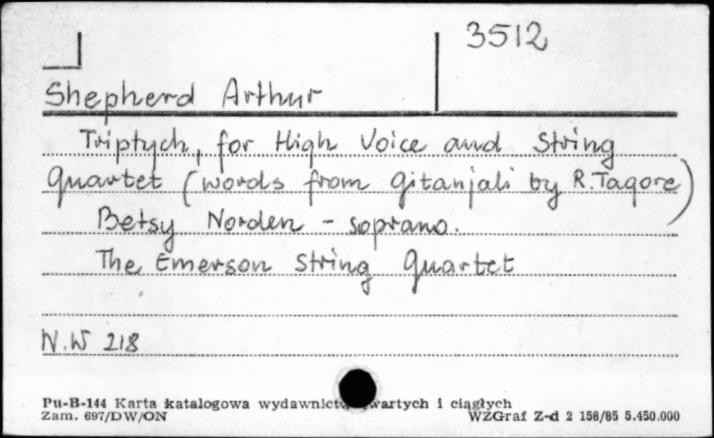 3512
Shepherd Arthur
Triptych, for High Voice and String
Quartet (words from Gitanjali by R. Tagore)
Betsy Norden - soprano.
The Emerson String Quartet
N.W 218
Pu-B-144 Karta katalogowa wydawnictw zwartych i ciągłych
Zam. 697/DW/ON WZGraf Z-d 2 158/85 5.450.000